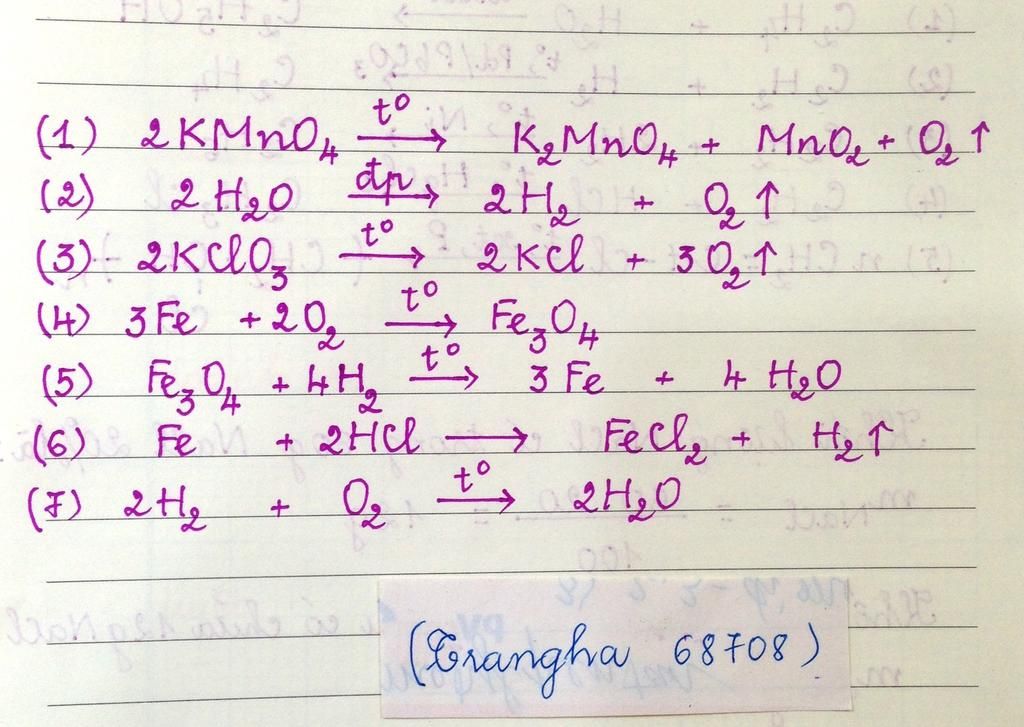 (1) 2KMnO₄ →(t°) K₂MnO₄ + MnO₂ + O₂ ↑
(2) 2H₂O →(đp) 2H₂ + O₂ ↑
(3) 2KClO₃ →(t°) 2KCl + 3O₂ ↑
(4) 3Fe + 2O₂ →(t°) Fe₃O₄
(5) Fe₃O₄ + 4H₂ →(t°) 3Fe + 4H₂O
(6) Fe + 2HCl → FeCl₂ + H₂ ↑
(7) 2H₂ + O₂ →(t°) 2H₂O
(Trangha 68708)